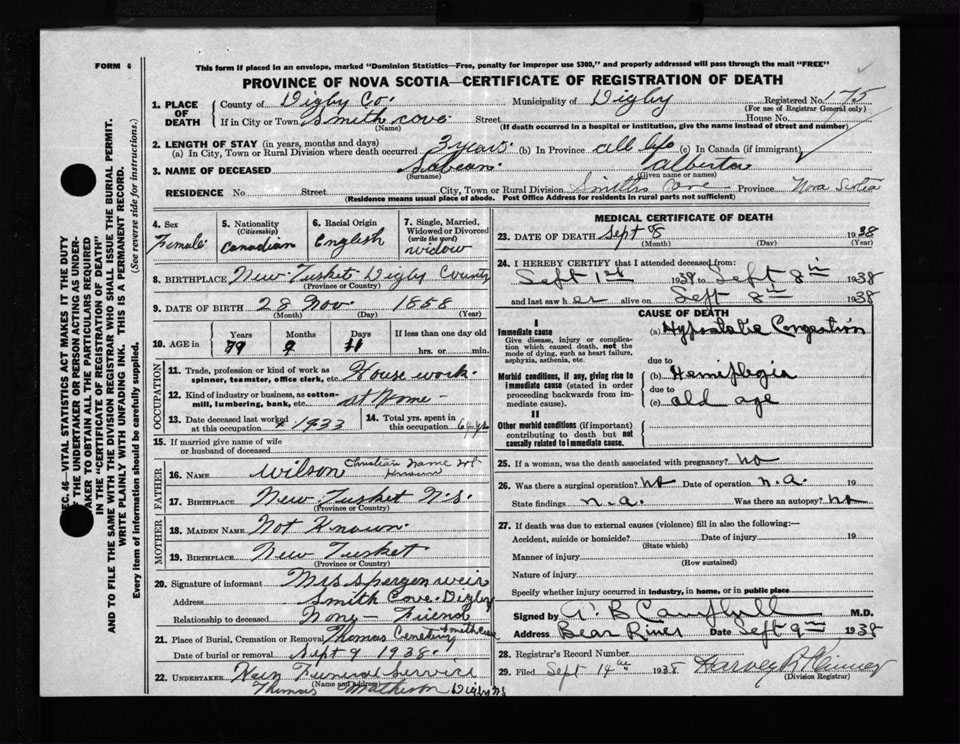 FORM 6
This form if placed in an envelope, marked "Dominion Statistics—Free, penalty for improper use $300," and properly addressed will pass through the mail "FREE"
PROVINCE OF NOVA SCOTIA—CERTIFICATE OF REGISTRATION OF DEATH
SEC. 46—VITAL STATISTICS ACT MAKES IT THE DUTY
OF THE UNDERTAKER OR PERSON ACTING AS UNDER-
TAKER TO OBTAIN ALL THE PARTICULARS REQUIRED
IN THE "CERTIFICATE OF REGISTRATION OF DEATH"
AND TO FILE THE SAME WITH THE DIVISION REGISTRAR WHO SHALL ISSUE THE BURIAL PERMIT.
WRITE PLAINLY WITH UNFADING INK. THIS IS A PERMANENT RECORD.
Every item of Information should be carefully supplied. (See reverse side for instructions.)
1. PLACE OF DEATH County of Digby Co. Municipality of Digby Registered No. 175
(For use of Registrar General only)
If in City or Town Smith cove Street House No.
(Name) (If death occurred in a hospital or institution, give the name instead of street and number)
2. LENGTH OF STAY (in years, months and days)
(a) In City, Town or Rural Division where death occurred 3 years (b) In Province all life (c) In Canada (if immigrant)
3. NAME OF DECEASED Sabean Alberta
(Surname) (Given name or names)
RESIDENCE No. Street City, Town or Rural Division Smiths Cove Province Nova Scotia
(Residence means usual place of abode. Post Office Address for residents in rural parts not sufficient)
4. Sex Female
5. Nationality (Citizenship) Canadian
6. Racial Origin English
7. Single, Married, Widowed or Divorced (write the word) widow
8. BIRTHPLACE New Tusket Digby County
(Province or Country)
9. DATE OF BIRTH 28 Nov. 1858
(Month) (Day) (Year)
10. AGE in Years 79 Months 9 Days 11 If less than one day old hrs. or min.
OCCUPATION
11. Trade, profession or kind of work as spinner, teamster, office clerk, etc. House work.
12. Kind of industry or business, as cotton-mill, lumbering, bank, etc. at Home
13. Date deceased last worked at this occupation 1933
14. Total yrs. spent in this occupation 64 yrs
15. If married give name of wife or husband of deceased
FATHER
16. NAME Wilson Christian name not known
17. BIRTHPLACE New Tusket N.S.
(Province or Country)
MOTHER
18. MAIDEN NAME Not Known.
19. BIRTHPLACE New Tusket
(Province or Country)
20. Signature of informant Mrs Spergen Weir
Address Smith Cove Digby
Relationship to deceased None - Friend
21. Place of Burial, Cremation or Removal Thomas Cemetery Smith Cove
Date of burial or removal Sept 9 1938.
22. UNDERTAKER Funeral Service
(Name and Address)
Thomas Matheson Digby NS
MEDICAL CERTIFICATE OF DEATH
23. DATE OF DEATH Sept 8 1938
(Month) (Day) (Year)
24. I HEREBY CERTIFY that I attended deceased from:
Sept 1st 1938 to Sept 8th 1938
and last saw her alive on Sept 8th 1938
CAUSE OF DEATH
I
Immediate cause
Give disease, injury or complication which caused death, not the mode of dying, such as heart failure, asphyxia, asthenia, etc.
(a) Hypostatic Congestion
due to
Morbid conditions, if any, giving rise to immediate cause (stated in order proceeding backwards from immediate cause).
(b) Hemiplegia
due to
(c) old age
II
Other morbid conditions (if important) contributing to death but not causally related to immediate cause.
25. If a woman, was the death associated with pregnancy? No
26. Was there a surgical operation? No Date of operation n.a. 19
State findings n.a. Was there an autopsy? No
27. If death was due to external causes (violence) fill in also the following:—
Accident, suicide or homicide? Date of injury 19
(State which)
Manner of injury
(How sustained)
Nature of injury
Specify whether injury occurred in industry, in home, or in public place
Signed by A. B Campbell M.D.
Address Bear River Date Sept 9th 1938
28. Registrar's Record Number
29. Filed Sept 14th 1938 Harvey
(Division Registrar)